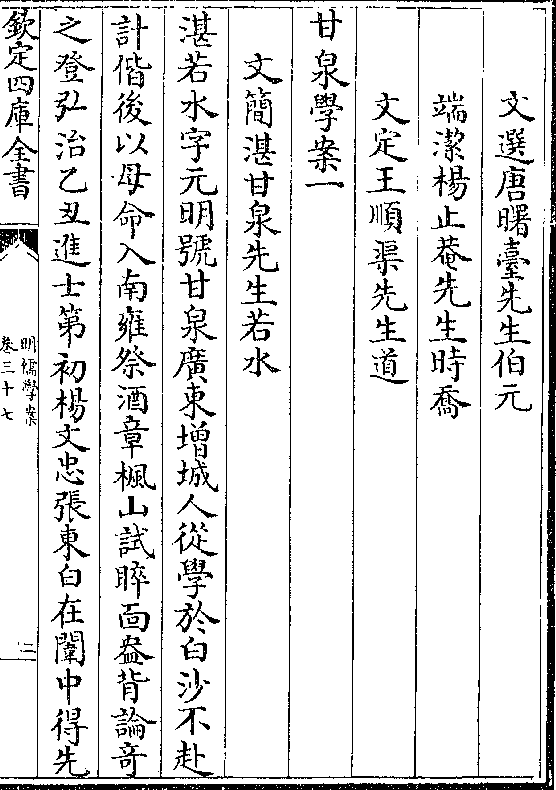 文選唐曙臺先生伯元
端潔楊止菴先生時喬
文定王順渠先生道
甘泉學案一
文簡湛甘泉先生若水
湛若水字元明號甘泉廣東增城人從學於白沙不赴
計偕後以母命入南雍祭酒章楓山試睟面盎背論竒
之登弘治乙丑進士第初楊文忠張東白在闈中得先
欽定四庫全書
明儒學案
卷三十七
三